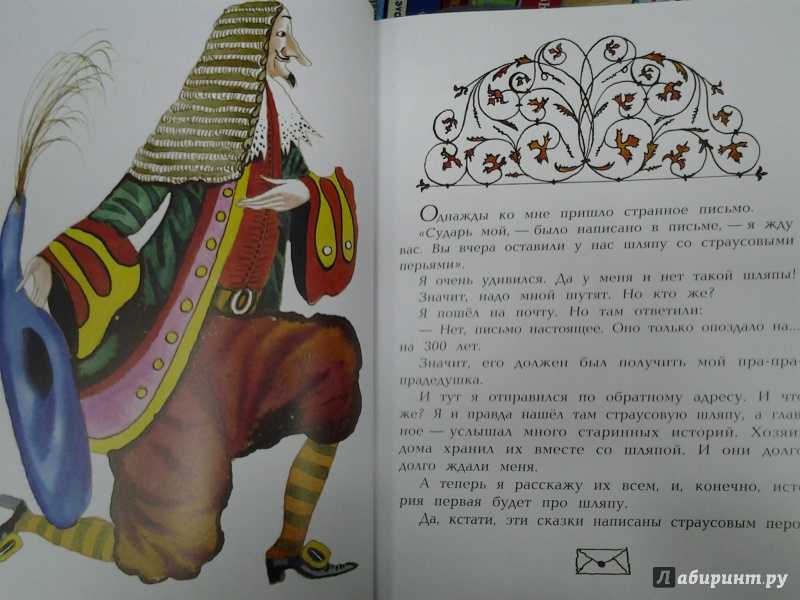 Однажды ко мне пришло странное письмо.
«Сударь мой, — было написано в письме, — я жду
вас. Вы вчера оставили у нас шляпу со страусовыми
перьями».
Я очень удивился. Да у меня и нет такой шляпы!
Значит, надо мной шутят. Но кто же?
Я пошёл на почту. Но там ответили:
— Нет, письмо настоящее. Оно только опоздало на...
на 300 лет.
Значит, его должен был получить мой пра-пра-
прадедушка.
И тут я отправился по обратному адресу. И что
же? Я и правда нашёл там страусовую шляпу, а глав
ное — услышал много старинных историй. Хозяин
дома хранил их вместе со шляпой. И они долго
долго ждали меня.
А теперь я расскажу их всем, и, конечно, исто
рия первая будет про шляпу.
Да, кстати, эти сказки написаны страусовым перо
Лабиринт.ру